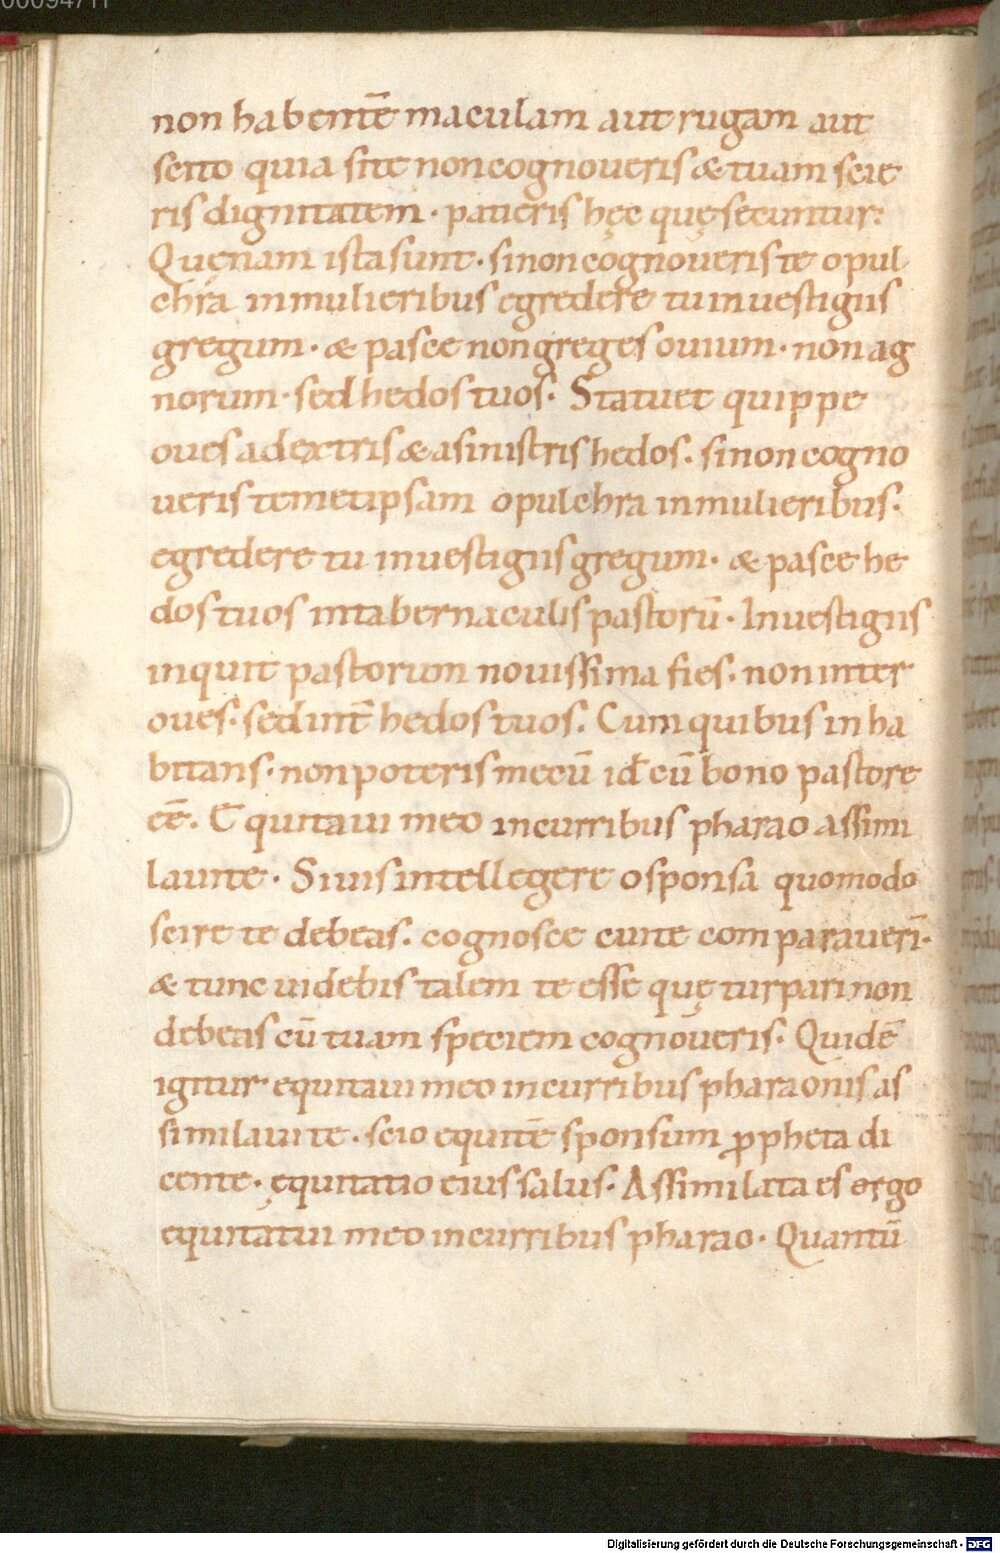 00094711
non habentē maculam aut rugam aut
scito quia si te non cognoueris & tuam scie
ris dignitatem · patieris hęc quę secuntur:
Quęnam ista sunt · si non cognoueris te o pul
chra in mulieribus egredere tu in uestigiis
gregum · & pasce non greges ouium · non ag
norum · sed hedos tuos · Statuet quippe
oues a dextris & a sinistris hedos · si non cogno
ueris temetipsam o pulchra in mulieribus ·
egredere tu in uestigiis gregum · & pasce he
dos tuos in tabernaculis pastorū · In uestigiis
inquit pastorum nouissima fies · non inter
oues · sed int̄ hedos tuos · Cum quibus in ha
bitans · non poteris mecū id cū bono pastore
ēē · Equitaui meo in curribus pharao assimi
laui te · Si uis intellegere o sponsa quomodo
scire te debeas · cognosce cui te comparauerī ·
& tunc uidebis talem te esse quę turpari non
debeas cū tuam speciem cognoueris · Quid ē
igitur equitaui meo in curribus pharaonis as
similaui te · scio equitē sponsum ꝓpheta di
cente · ęquitatio eius salus · Assimilata es ergo
equitatui meo in curribus pharao · Quantū
Digitalisierung gefördert durch die Deutsche Forschungsgemeinschaft - DFG